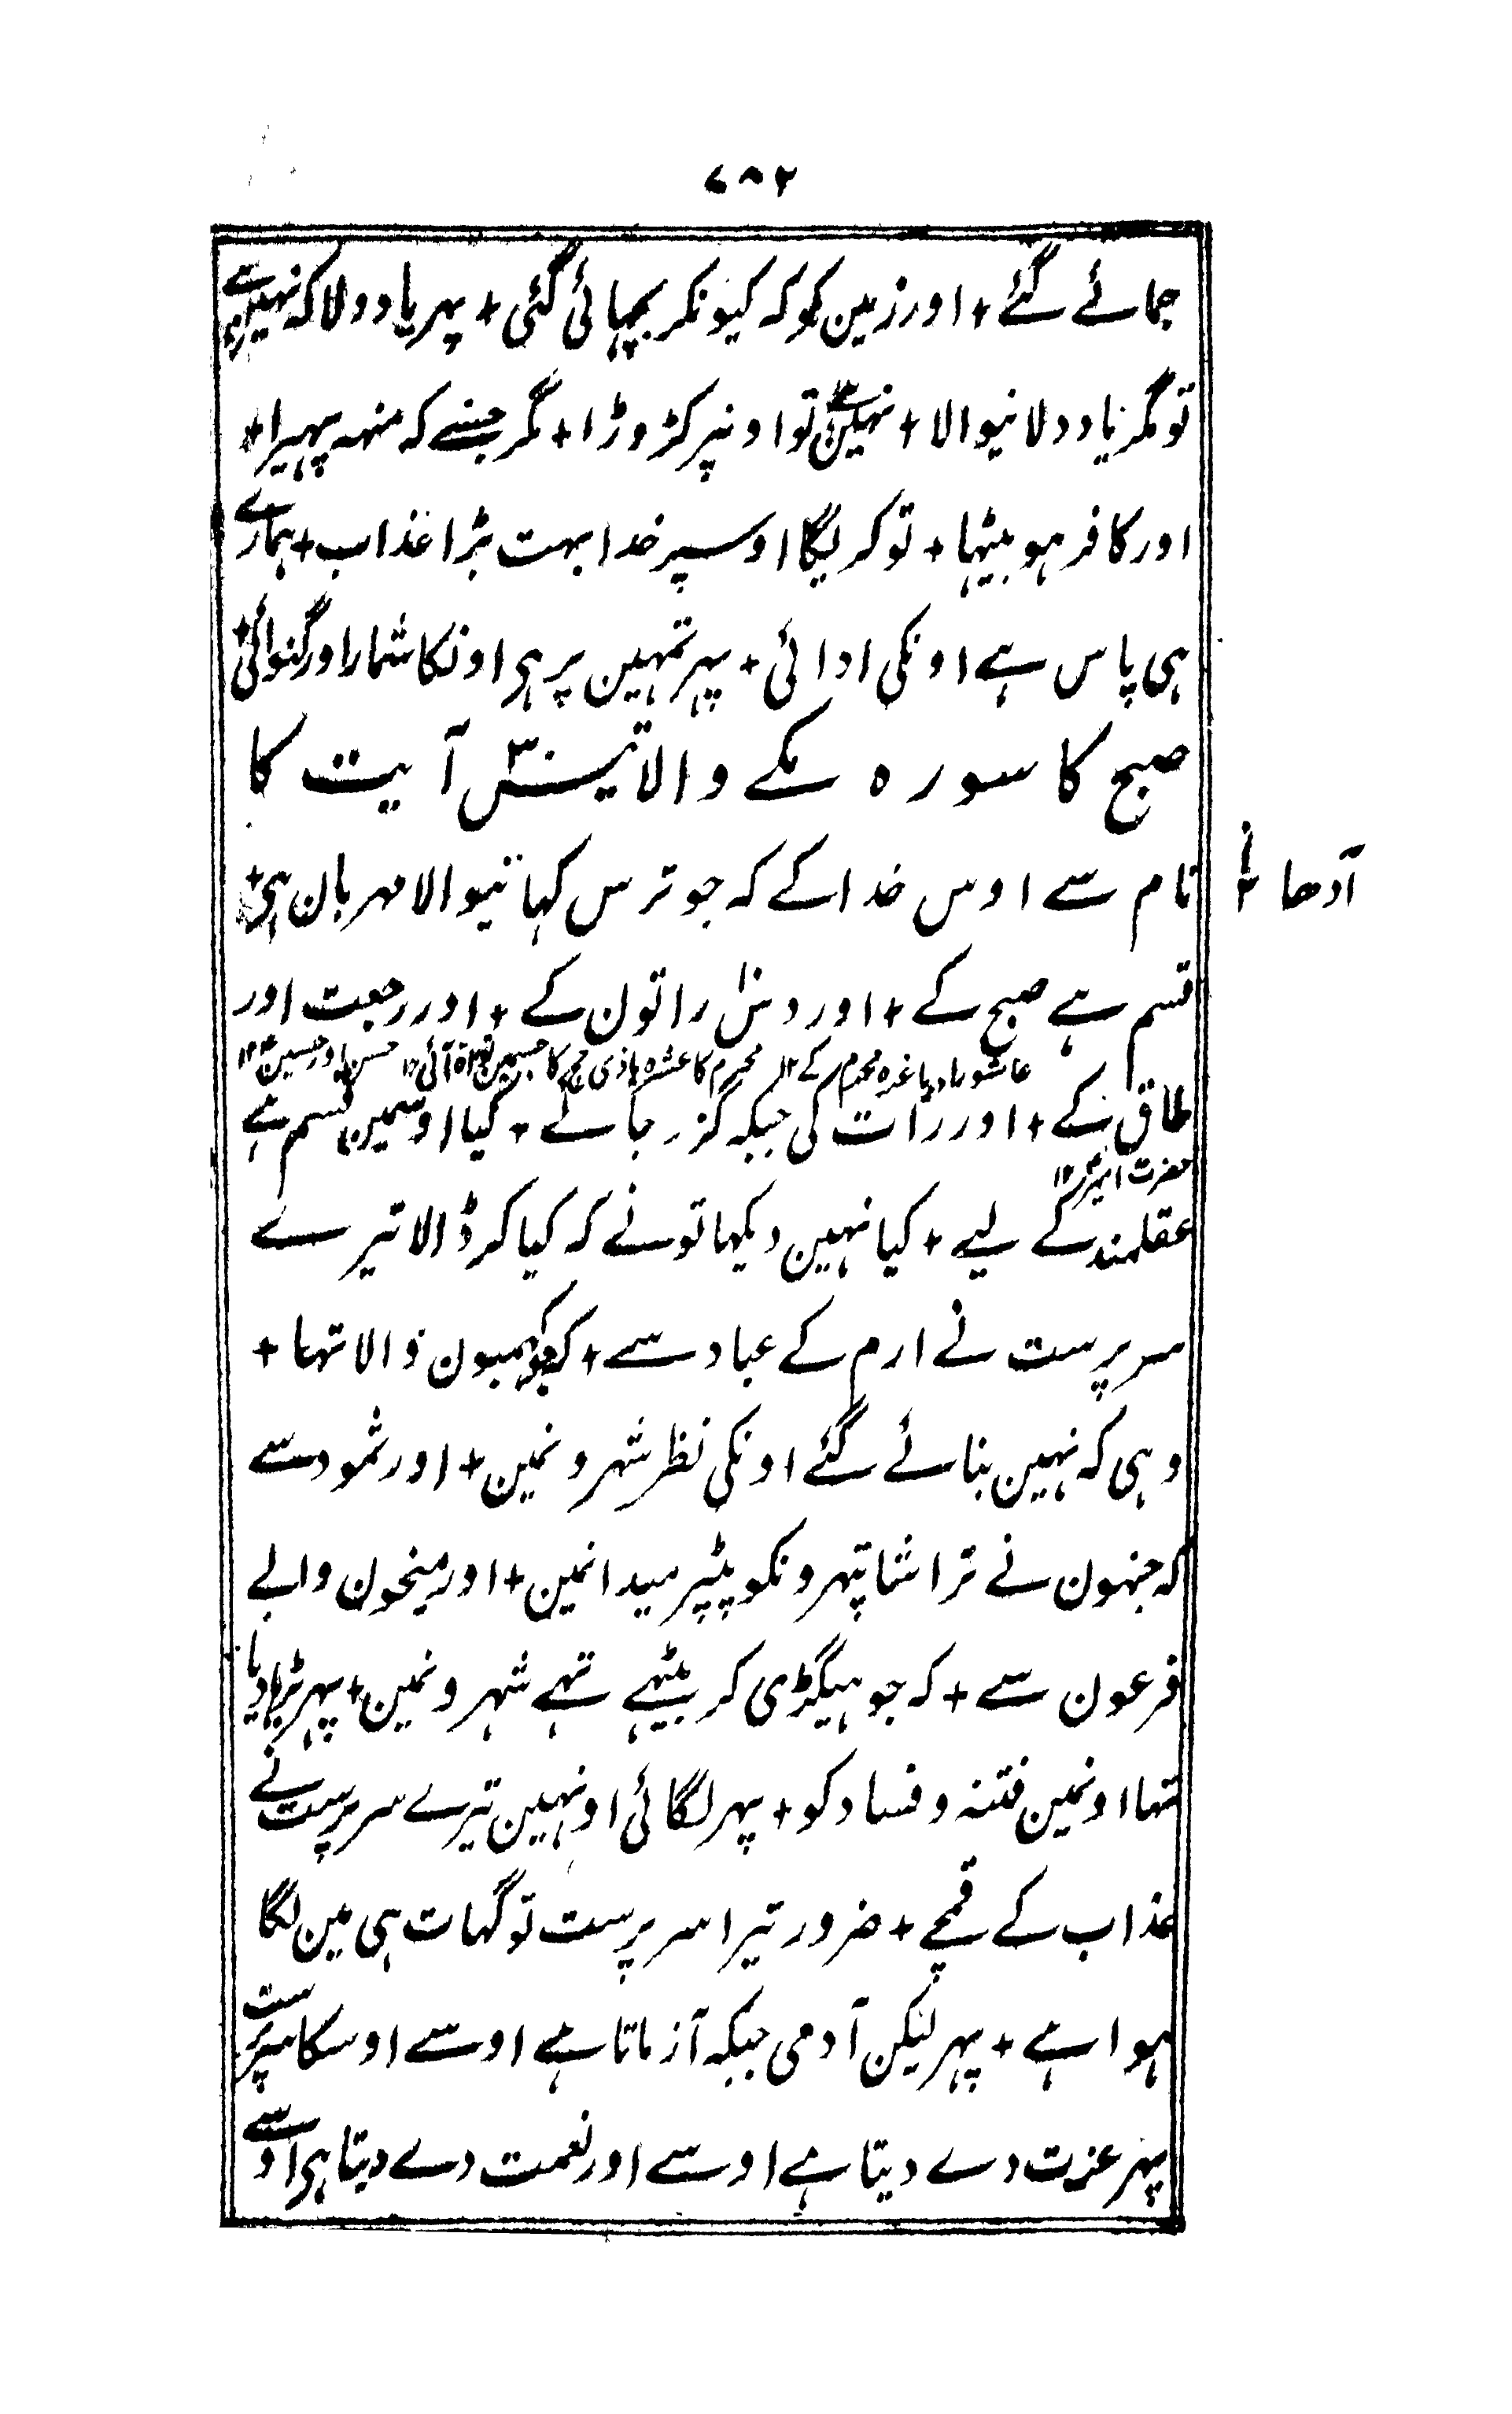 ۷۸۲
جمائے گئے + اور زمین کو کہ کیونکر بچھائی گئی + پہر یاد دولا کہ نہین ہے
تو مگر یاد دلانیوالا + نہین ہے تو اونپر کڑوڑا + مگر جسنے کہ منہہ پہیرا +
اور کافر ہو بیٹھا + تو کریگا اوسپر خدا بہت بڑا عذاب + ہمارے
ہی پاس ہے اونکی ادائی + پہر تمہین پر ہی اونکا شمار اور گنوائی +
صبح کا سورہ مکے والا تیس ۳۰ آیت کا
نام سے اوس خدا کے کہ جو ترس کہانیوالا مہربان ہی +
آدھا
قسم ہے صبح کے + اور دس ۱۰ راتون کے + اور جفت اور
عاشورا یا غرہ محرم کے ۱۲ محرم کا عشرہ یا ذی حجہ کا جسمین توراۃ آئی ۱۲ حسن اور حسین ۱۲
طاق کے + اور رات کی جبکہ گزر جائے + کیا اوسمین قسم ہے
حضرت امیر ۱۲
عقلمند کے لیے + کیا نہین دیکہا تو نے کہ کیا کر ڈالا تیرے
سرپرست نے ارم کے عباد سے + کہ جو کہمبون والا تہا +
وہی کہ نہین بنائے گئے اونکی نظر شہرونمین + اور ثمود سے
کہ جنہون نے تراشا پتہرونکو پٹپر میدانمین + اور میخون والے
فرعون سے + کہ جو ہیگڑی کر بیٹہے تہے شہرونمین + پہر بڑہا دیا
تہا اونمین فتنہ و فساد کو + پہر لگائی اونہین تیرے سرپرست نے
عذاب کے قمچے + ضرور تیرا سرپرست تو گہات ہی مین لگا
ہوا ہے + پہر لیکن آدمی جبکہ آزماتا ہے اوسے اوسکا سرپرست
پہر عزت دے دیتا ہے اوسے اور نعمت دے دیتا ہی اوسے